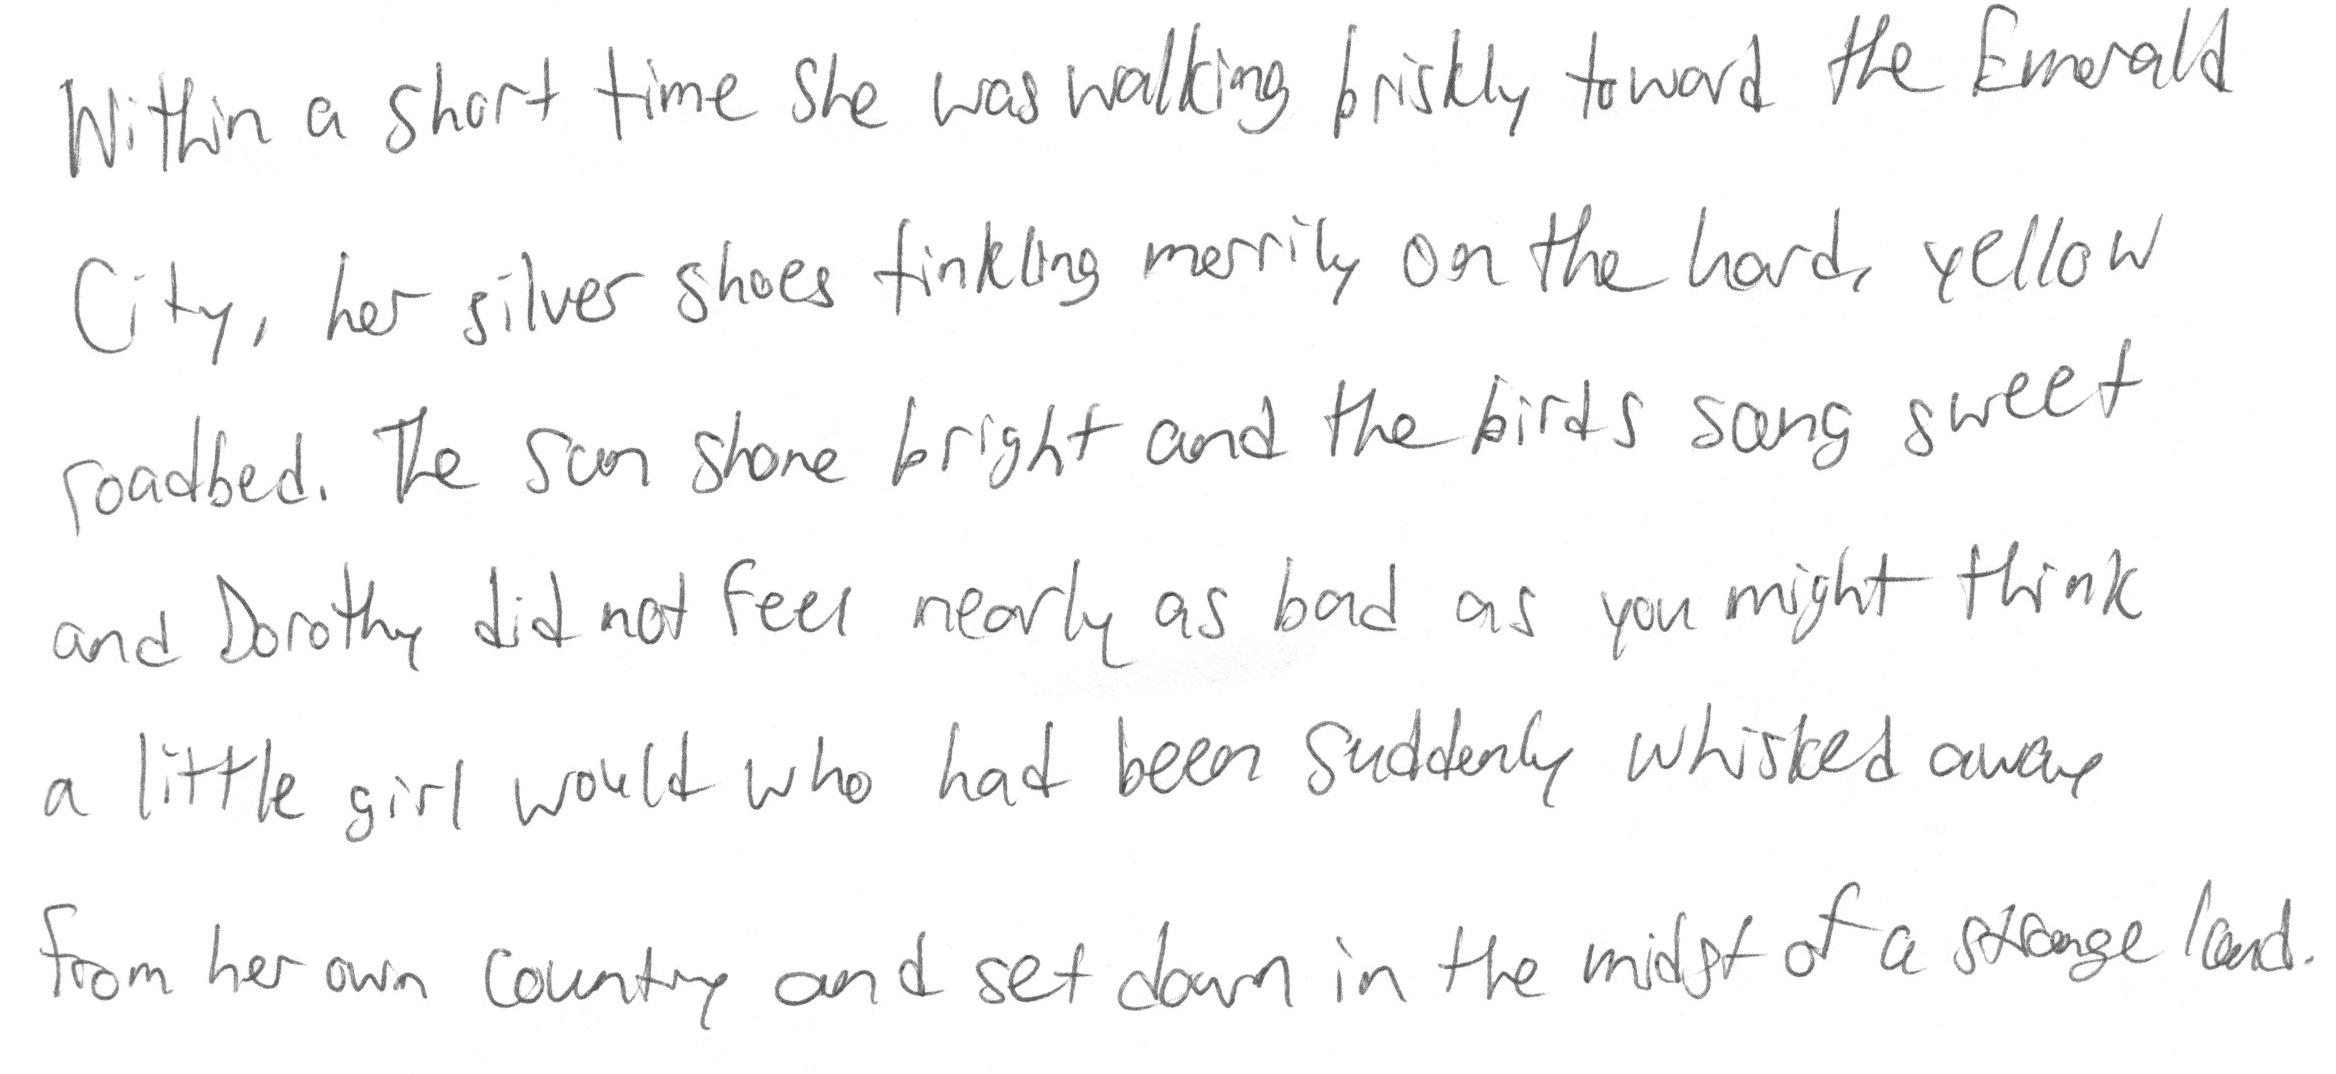 Within a short time she was walking briskly toward the Emerald
City, her silver shoes tinkling merrily on the hard, yellow
roadbed. The sun shone bright and the birds sang sweet
and Dorothy did not feel nearly as bad as you might think
a little girl would who had been suddenly whisked away
from her own country and set down in the midst of a strange land.